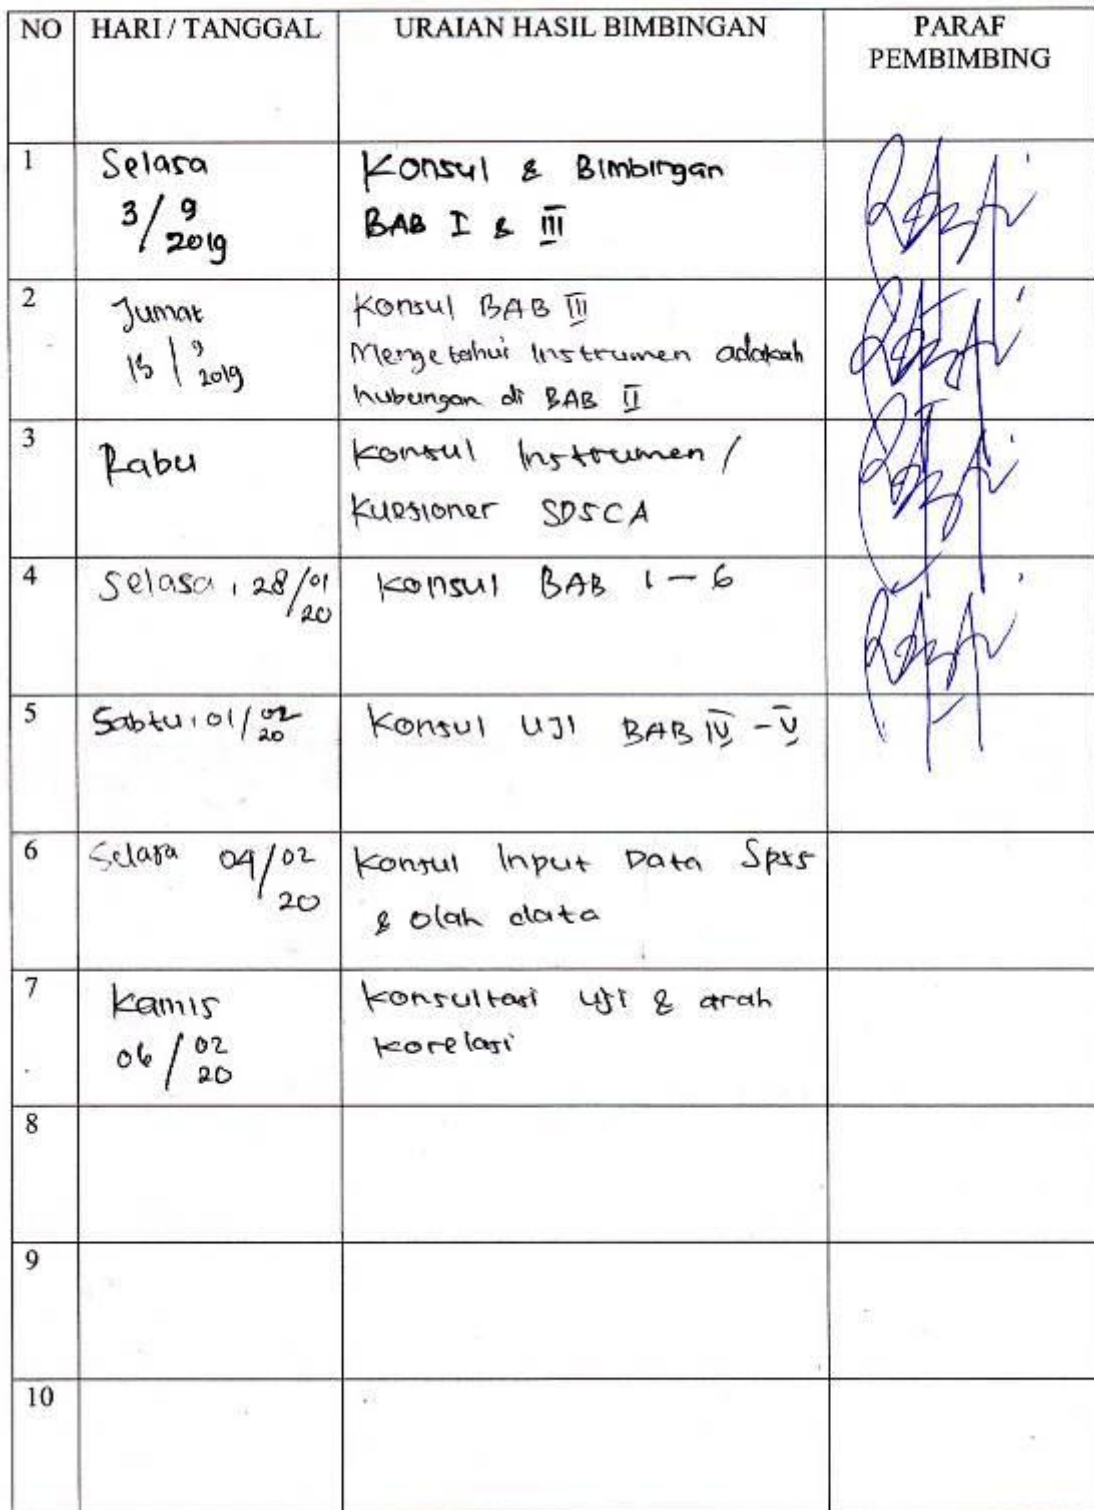 NO HARI / TANGGAL URAIAN HASIL BIMBINGAN PARAF
PEMBIMBING
1 Selasa Konsul & Bimbingan
3/9 BAB I & III
2019
2 Jumat Konsul BAB III
9 Mengetahui Instrumen adakah
2019 hubungan di BAB II
3 Rabu Konsul Instrumen /
Kuesioner SDSCA
4 Selasa, 28/01 Konsul BAB 1 - 6
20
5 Sabtu, 01/02 Konsul UJI BAB IV - V
20
6 Selasa 04/02 Konsul Input Data Spss
20 & olah data
7 Kamis Konsultasi uji & arah
06/02 korelasi
20
8
9
10